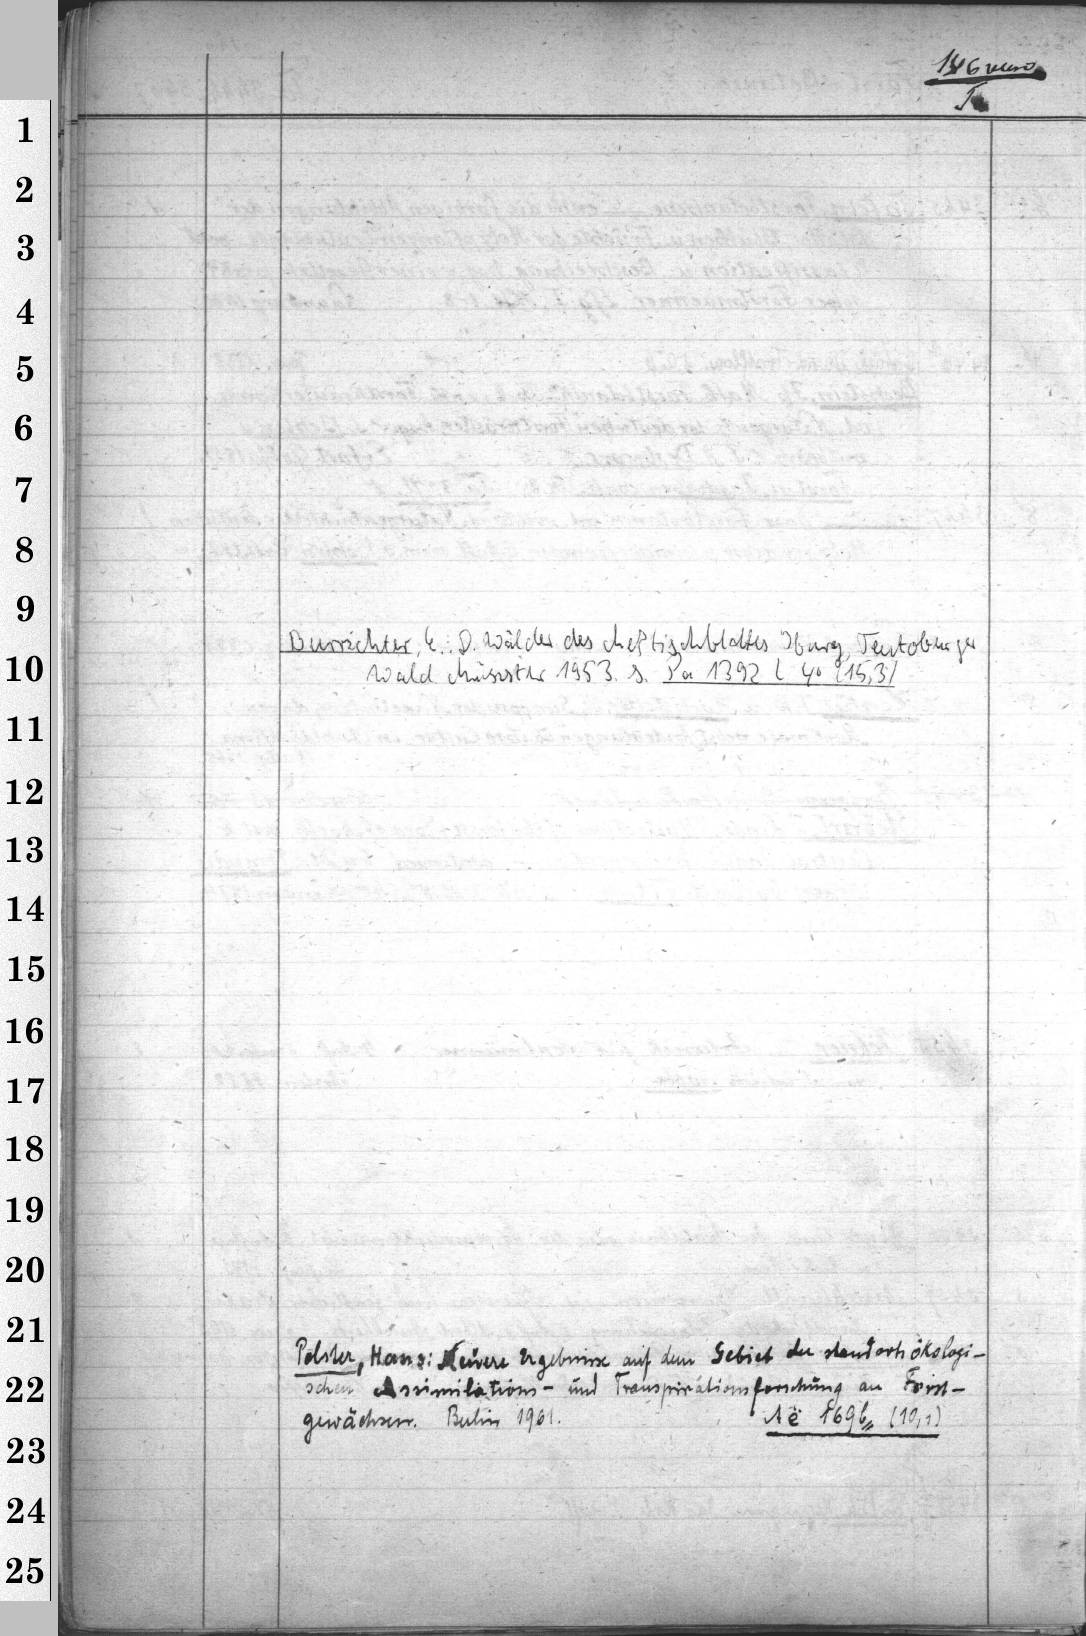 1
2
3
4
5
6
7
8
9
10
11
12
13
14
15
16
17
18
19
20
21
22
23
24
25
Burrichter, E.: D. Wälder des Meßtischblattes Iburg, Teutoburger
Wald Münster 1953. s. Pa 1392 l 4° (15,3)
Polster, Hans: Neuere Ergebnisse auf dem Gebiet der standortsökologi-
schen Assimilations- und Transpirationsforschung an Forst-
gewächsen. Berlin 1961. Aë 169b (10,1)